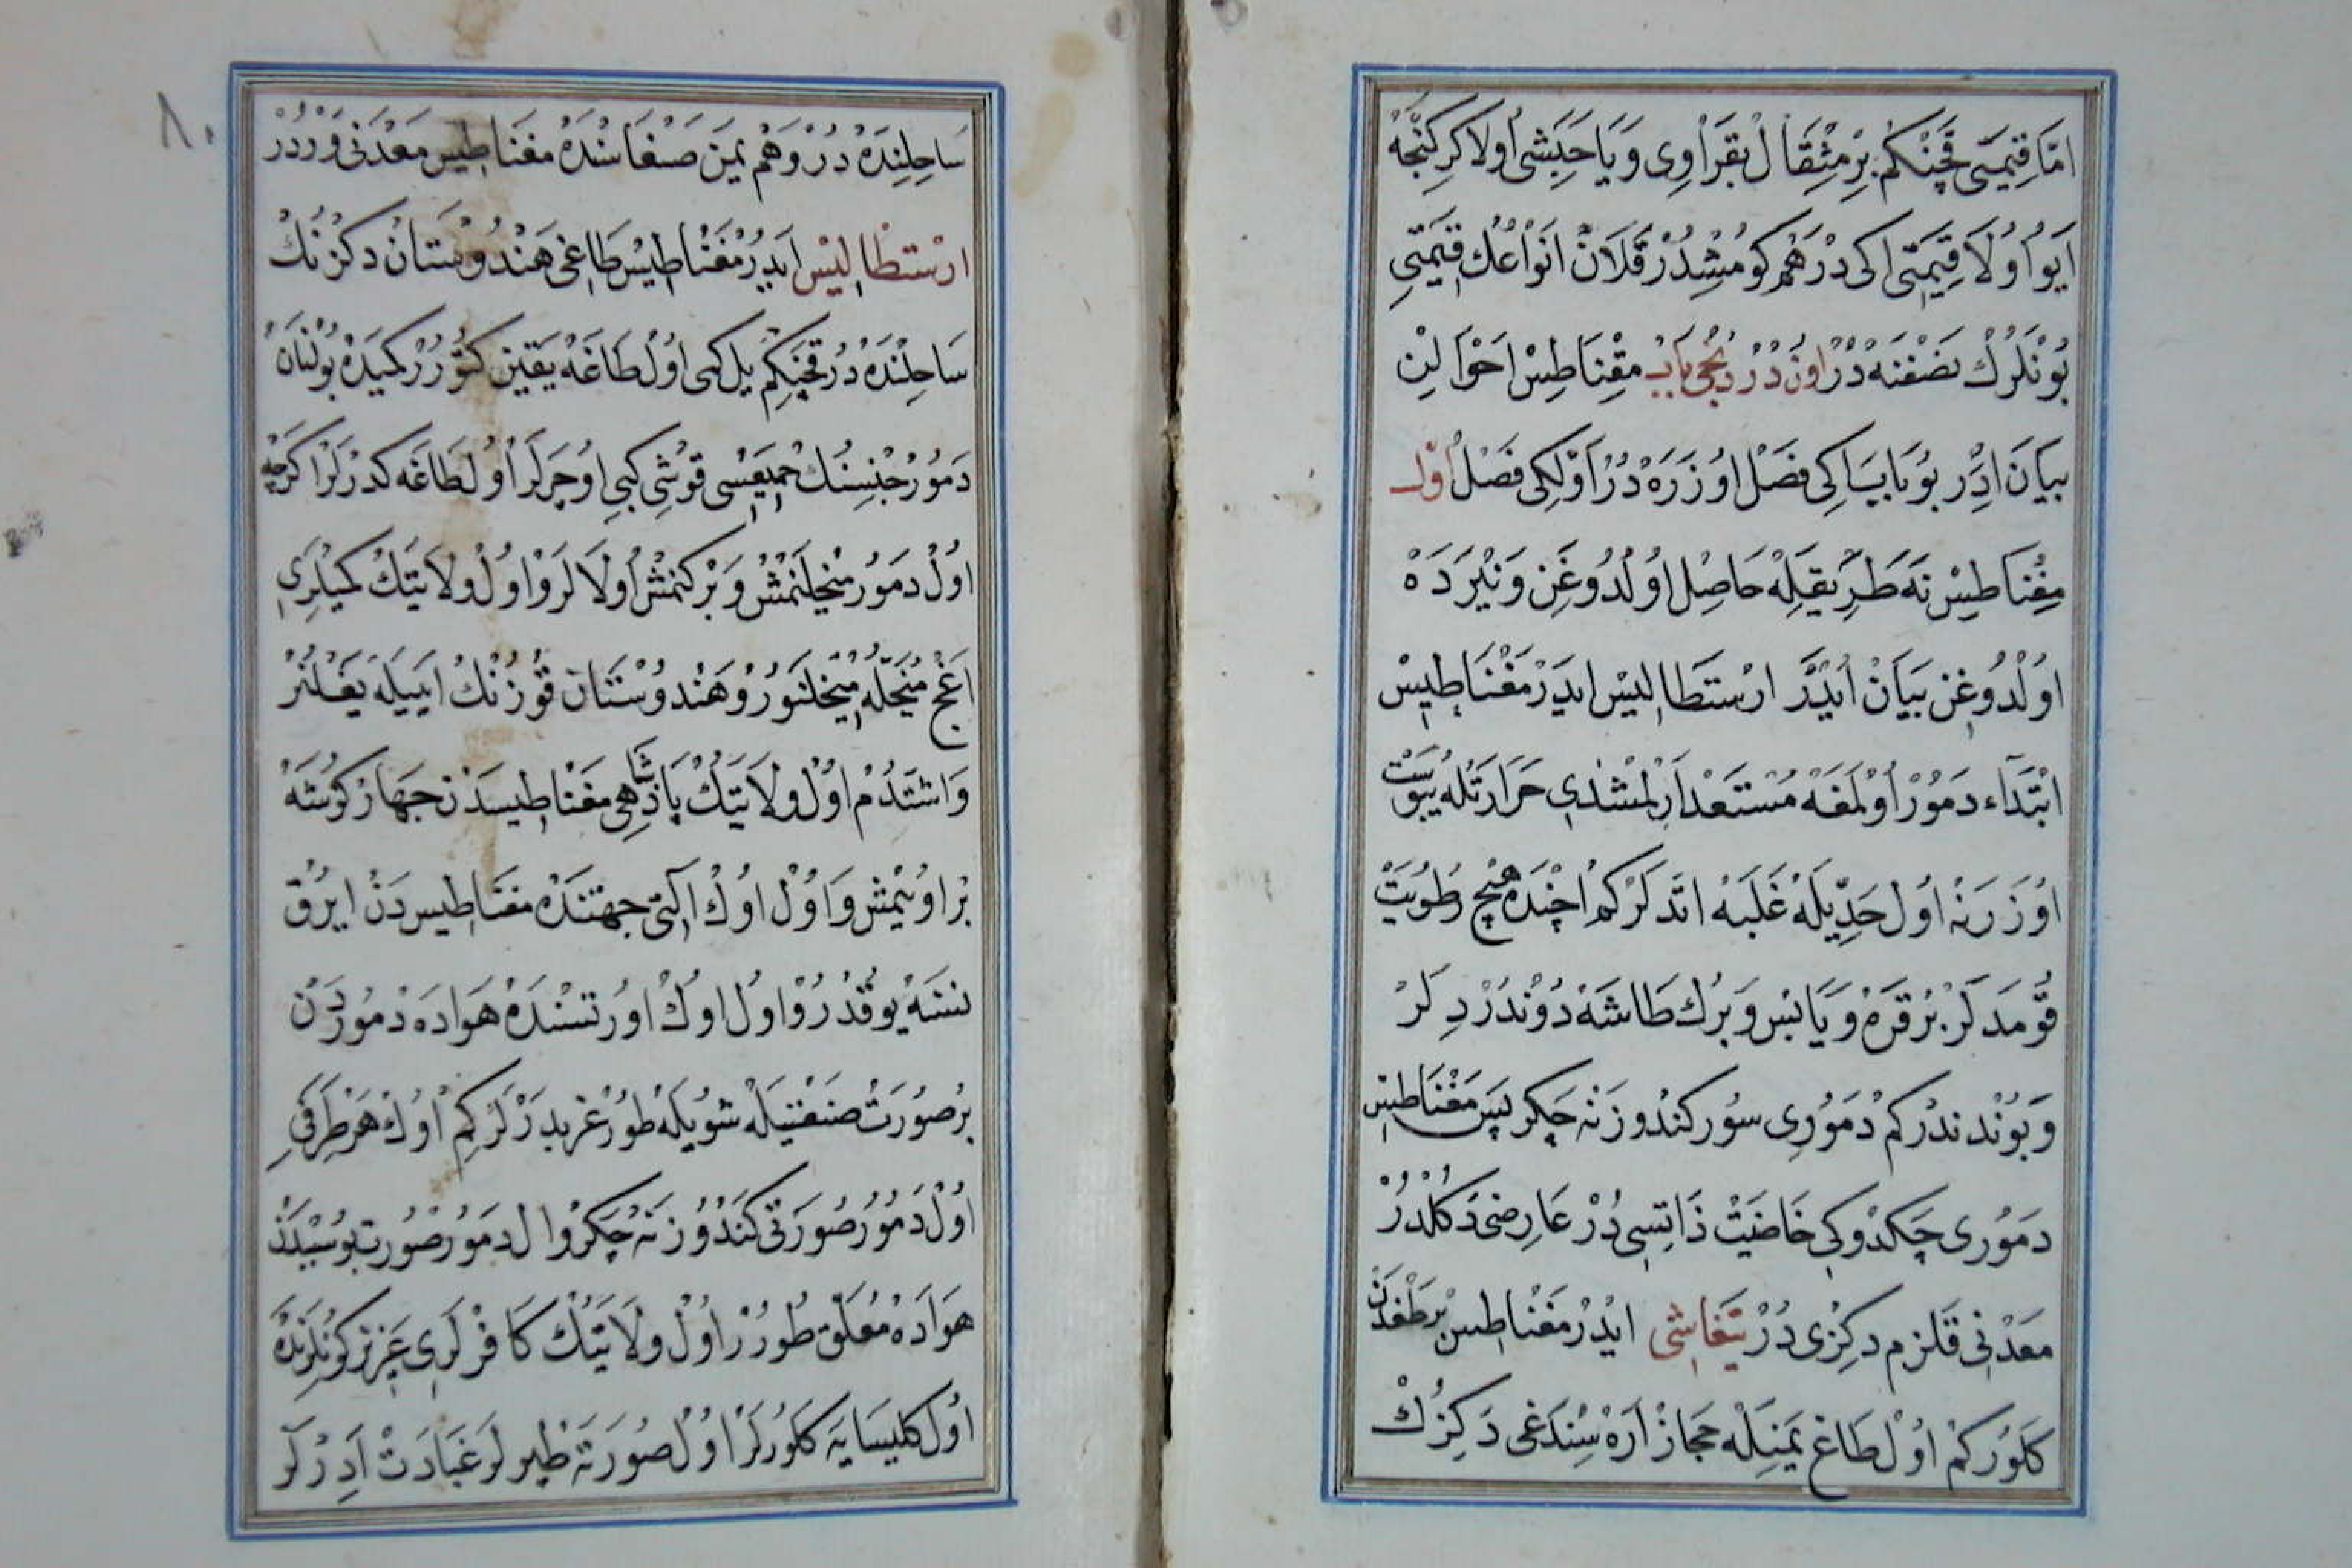 امّا قيمتى قچنكم بر مثقال بقراوى ويا حبشى اولا كر كنجه
ايو اولا قيمتى اكى درهم كومشدر قلان انواعك قيمتى
بونلرك نصفنه در اون دردنجى باب مقناطس احوالن
بيان ادر بو باب اكى فصل اوزره در اولكى فصل اول
مغناطيس نه طريقله حاصل اولدوغن ونيرده
اولدوغن بيان ايدر ارستطاليس ايدر مغناطيس
ابتداء دمور اولمغه مستعد ارلمشدى حرارتله يبوست
اوزرنه اول حديله غلبه اتدلر كم اچنده هيچ رطوبت
قومدلر بر قره ويابس وبرك طاشه دوندردلر
وبوندندر كم دمورى سور كندوزنه چكر پس مغناطيس
دمورى چكدوكى خاصيت ذاتيسى در عارضى دكلدر
معدنى قلزم دكزى در تيفاشى ايدر مغناطيس بر طغدن
كلور كم اول طاغ يمنله حجاز اره سنداغى دكزك
٨٠
ساحلنده در وهم يمن صنعاسنده مغناطيس معدنى وردر
ارستطاليس ايدر مغناطيس طاغى هندوستان دكزنك
ساحلنده در قچنكم يل كمى اول طاغه يقين كتورر كميده بولنان
دمور جنسنك جميعسى قوش كبى اوچرلر اول طاغه كدرلر اكرچه
اول دمور منجلنمش وبركنمش اولالر و اول ولايتك كميلرى
اغج منجله منجلنور و هندوستان قوزنك ايپيله بغلنر
واشتدم اول ولايتك پادشاهى مغناطيسدن چهار كوشه
بر او يپمش و اول اوك التى جهتنده مغناطيسدن ايرق
نسنه يوقدر و اول اوك اورتسنده هواده دموردن
بر صورت صنعتيله شويله طورغربدرلر كم اوك هر طرفى
اول دمور صورتى كندوزنه چكر و اول دمور صورت بو سببدن
هواده معلق طورر اول ولايتك كافرلرى عزيز كونلرنده
اول كليسايه كلورلر اول صورته طپرلر عبادت ادرلر